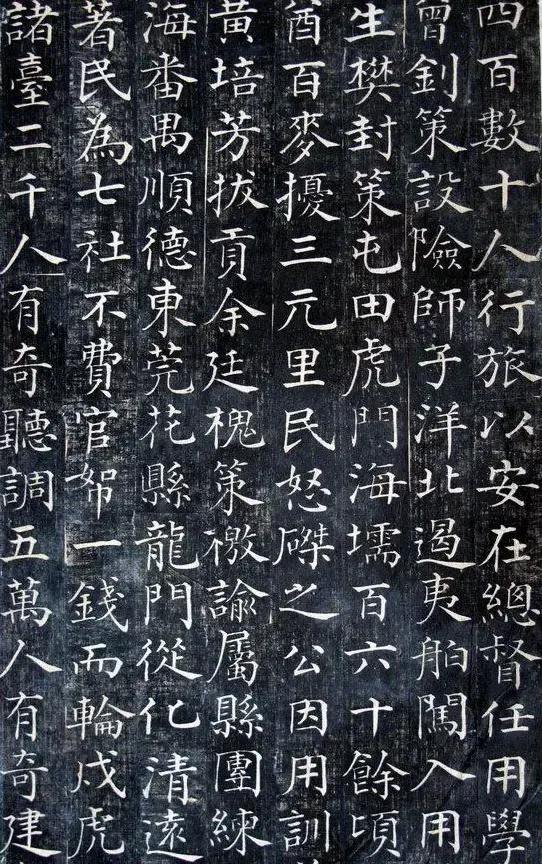 四百數十人行旅以安在總督任用學
曾釗策設險師子洋北遏夷舶闖入用
生樊封策屯田虎門海壖百六十餘頃
酋百麥擾三元里民怒磔之公因用訓
黃培芳拔貢余廷槐策檄諭屬縣團練
海番禺順德東莞花縣龍門從化清遠
著民為七社不費官帑一錢而輪戍虎
諸臺二千人有奇聽調五萬人有奇建